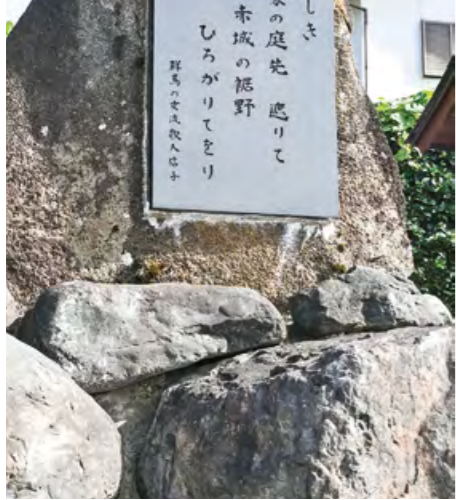 しき
家の庭先　遮りて
赤城の裾野
ひろがりてをり
群馬の女流歌人信子